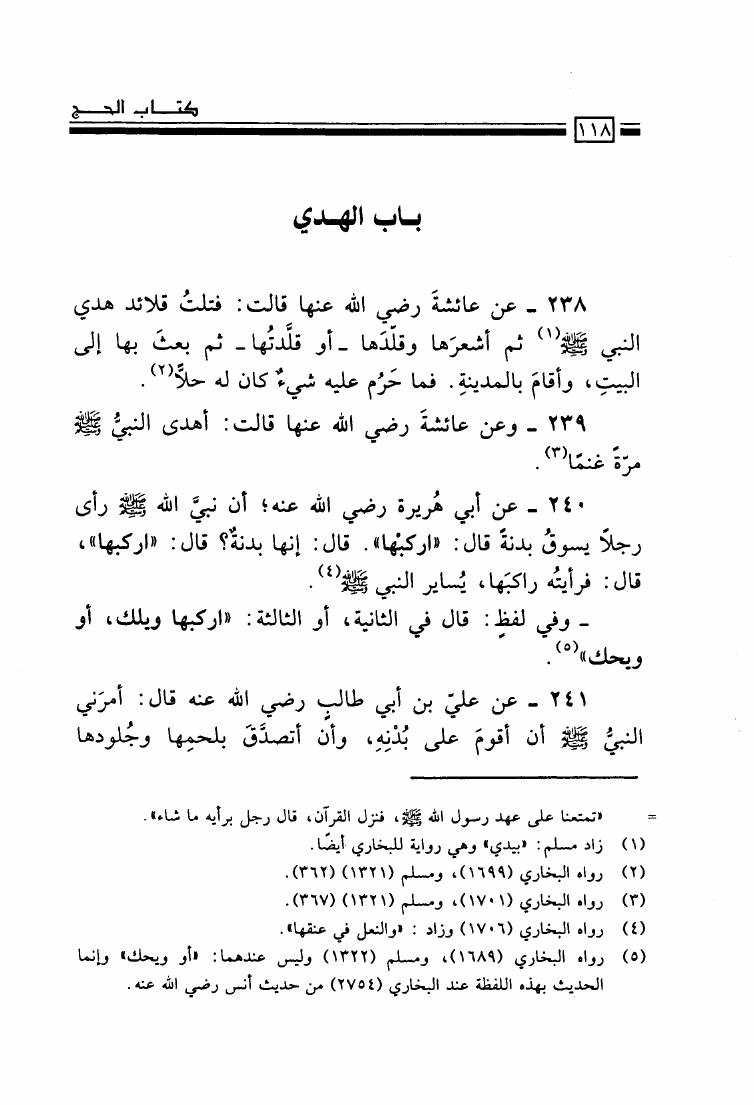 كتـــاب الحـــج
١١٨
بـاب الهـدي
٢٣٨ ـ عن عائشةَ رضي الله عنها قالت: فتلتُ قلائد هدي
النبي ﷺ(١) ثم أشعرَها وقلّدَها ـ أو قلَّدتُها ـ ثم بعثَ بها إلى
البيتِ، وأقامَ بالمدينةِ. فما حَرُم عليه شيءٌ كان له حلاًّ(٢).
٢٣٩ ـ وعن عائشةَ رضي الله عنها قالت: أهدى النبيُّ ﷺ
مرّةً غنمًا(٣).
٢٤٠ ـ عن أبي هُريرة رضي الله عنه؛ أن نبيَّ الله ﷺ رأى
رجلاً يسوقُ بدنةً قال: «اركبْها». قال: إنها بدنةٌ؟ قال: «اركبها»،
قال: فرأيتُه راكبَها، يُساير النبي ﷺ(٤).
ـ وفي لفظٍ: قال في الثانية، أو الثالثة: «اركبها ويلك، أو
ويحك»(٥).
٢٤١ ـ عن عليّ بن أبي طالبٍ رضي الله عنه قال: أمرَني
النبيُّ ﷺ أن أقومَ على بُدْنِهِ، وأن أتصدَّقَ بلحمِها وجُلودها
= «تمتعنا على عهد رسول الله ﷺ، فنزل القرآن، قال رجل برأيه ما شاء».
(١) زاد مسلم: «بيدي» وهي رواية للبخاري أيضًا.
(٢) رواه البخاري (١٦٩٩)، ومسلم (١٣٢١) (٣٦٢).
(٣) رواه البخاري (١٧٠١)، ومسلم (١٣٢١) (٣٦٧).
(٤) رواه البخاري (١٧٠٦) وزاد : «والنعل في عنقها».
(٥) رواه البخاري (١٦٨٩)، ومسلم (١٣٢٢) وليس عندهما: «أو ويحك» وإنما
الحديث بهذه اللفظة عند البخاري (٢٧٥٤) من حديث أنس رضي الله عنه.